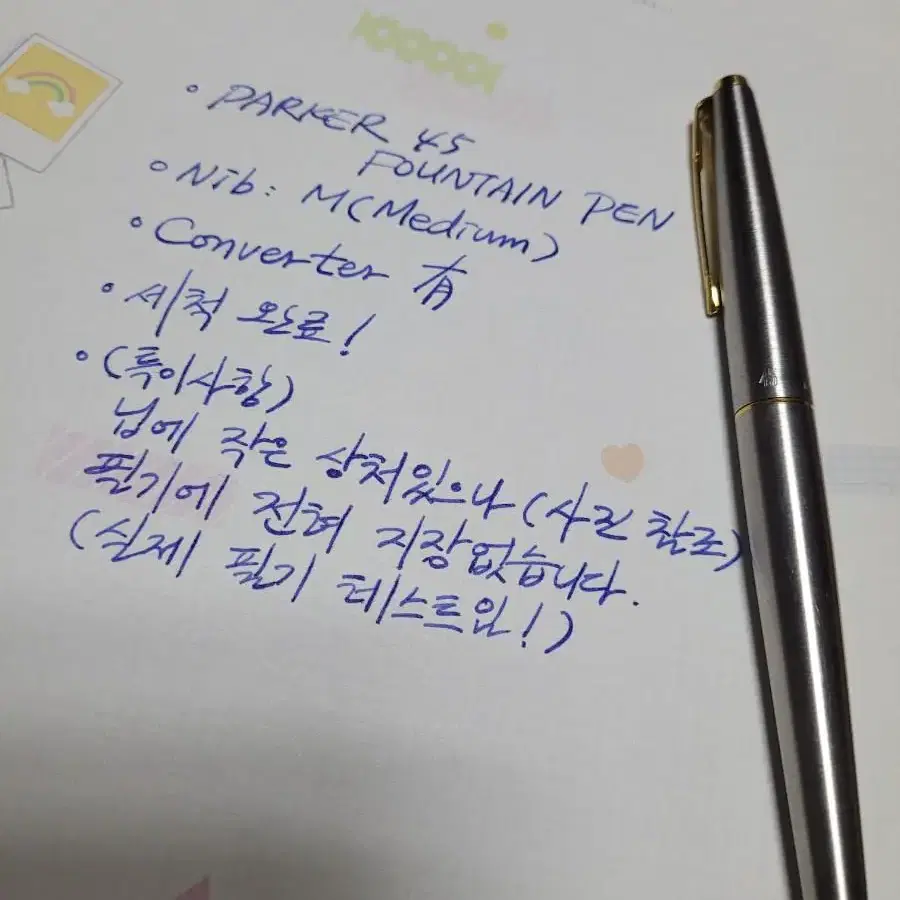 • PARKER 45
FOUNTAIN PEN
• Nib: M(Medium)
• Converter 有
• 세척 완료!
• (특이사항)
닙에 작은 상처있으나 (사진 참조)
필기에 전혀 지장없습니다.
(실제 필기 테스트임!)